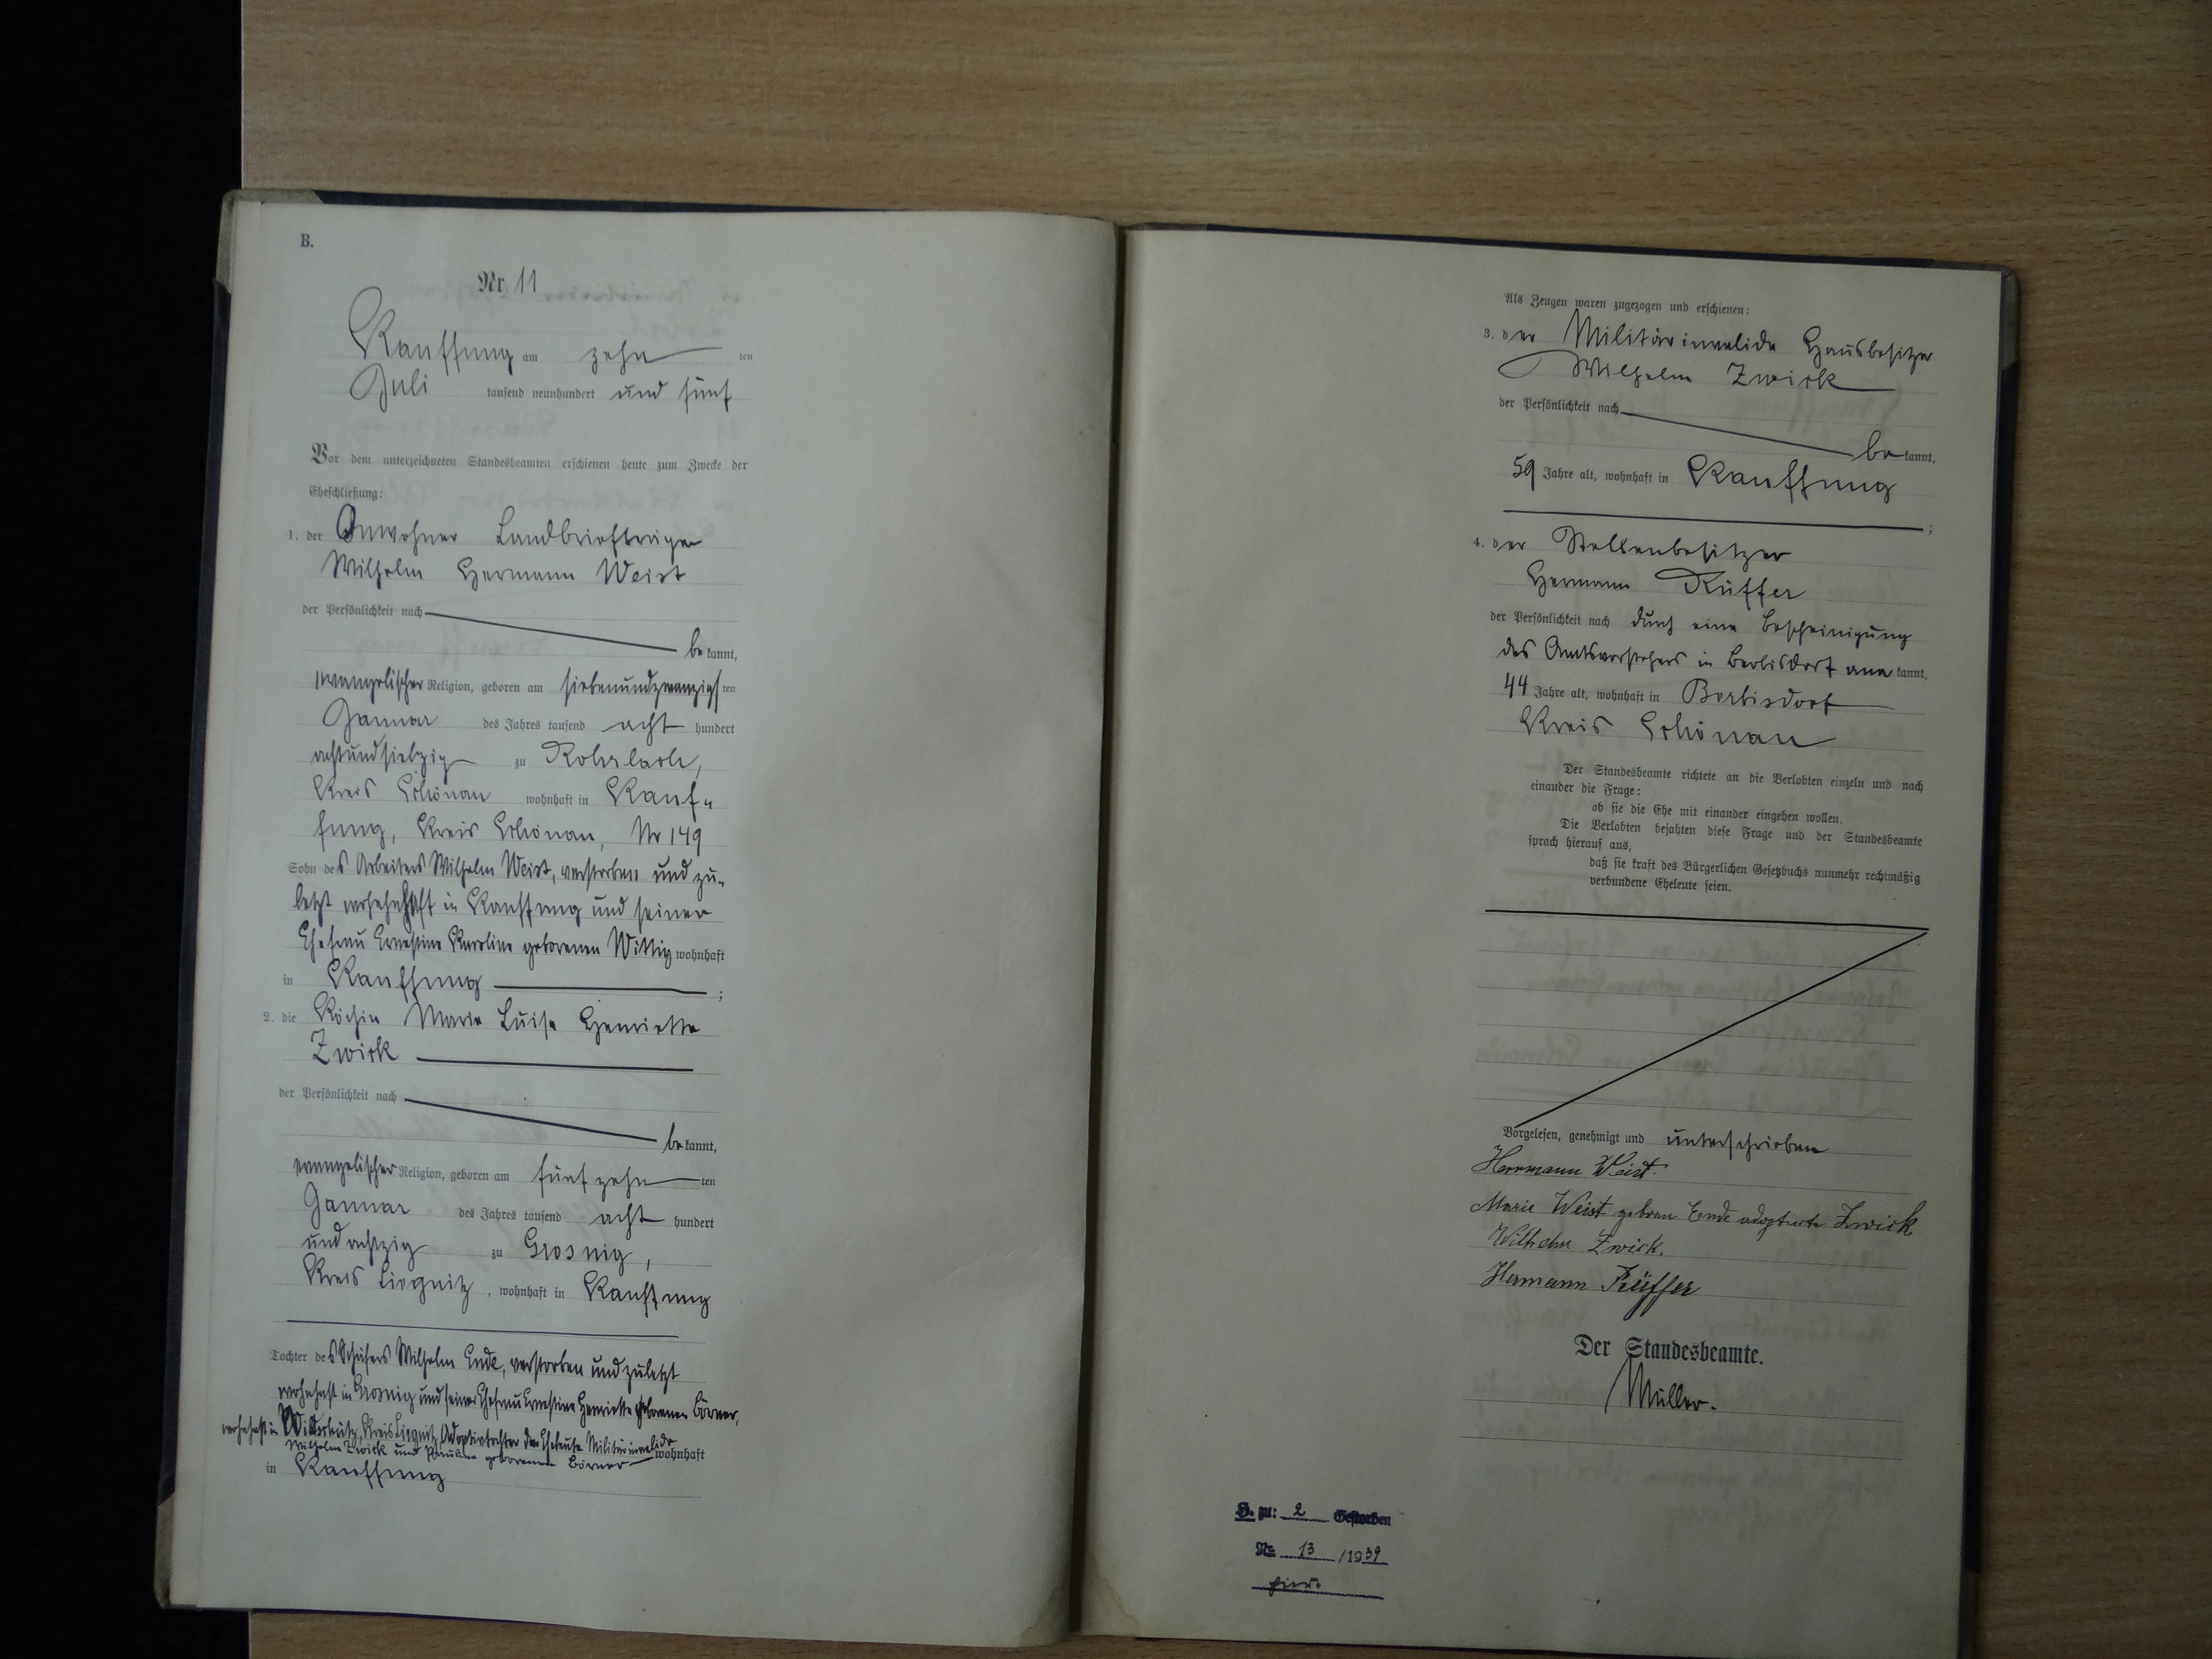 B.
Nr. 11
Kauffung am zehn ten
Juli tausend neunhundert und fünf
Vor dem unterzeichneten Standesbeamten erschienen heute zum Zwecke der
Eheschließung:
1. der Anwohner Landbriefträger
Wilhelm Hermann Weist
der Persönlichkeit nach
be kannt,
evangelischer Religion, geboren am siebenundzwanzigs ten
Januar des Jahres tausend acht hundert
achtundsiebzig zu Rohrlach,
Kreis Schönau wohnhaft in Kauf-
fung, Kreis Schönau, Nr 149
Sohn des Arbeiters Wilhelm Weist, verstorben und zu-
letzt wohnhaft in Kauffung und seiner
Ehefrau Ernestine Karoline geborenen Wittig wohnhaft
in Kauffung ;
2. die Köchin Marie Luise Henriette
Zwick
der Persönlichkeit nach
be kannt,
evangelischer Religion, geboren am fünfzehn ten
Januar des Jahres tausend acht hundert
und achtzig zu Grosnig,
Kreis Liegnitz, wohnhaft in Kauffung
Tochter des Schäfers Wilhelm Ende, verstorben und zuletzt
wohnhaft in Grosnig und seiner Ehefrau Ernestine Henriette geborenen Börner,
wohnhaft in Kreis Liegnitz, Adoptivtochter der Eheleute Militärinvalide
Wilhelm Zwick und Pauline geborenen Börner wohnhaft
in Kauffung
Als Zeugen waren zugezogen und erschienen:
3. der Militärinvalide Hausbesitzer
Wilhelm Zwick
der Persönlichkeit nach
be kannt,
59 Jahre alt, wohnhaft in Kauffung
;
4. der Stellenbesitzer
Hermann Rüffer
der Persönlichkeit nach durch eine Bescheinigung
des Amtsvorstehers in Berbisdorf aner kannt,
44 Jahre alt, wohnhaft in Berbisdorf
Kreis Schönau
Der Standesbeamte richtete an die Verlobten einzeln und nach
einander die Frage:
ob sie die Ehe mit einander eingehen wollen.
Die Verlobten bejahten diese Frage und der Standesbeamte
sprach hierauf aus,
daß sie kraft des Bürgerlichen Gesetzbuchs nunmehr rechtmäßig
verbundene Eheleute seien.
Vorgelesen, genehmigt und unterschrieben
Herrmann Weist.
Marie Weist geboren Ende adoptierte Zwick
Wilhelm Zwick.
Hermann Rüffer
Der Standesbeamte.
Müller.
H. zu: 2 Gestorben
No 13 /1939
hier.